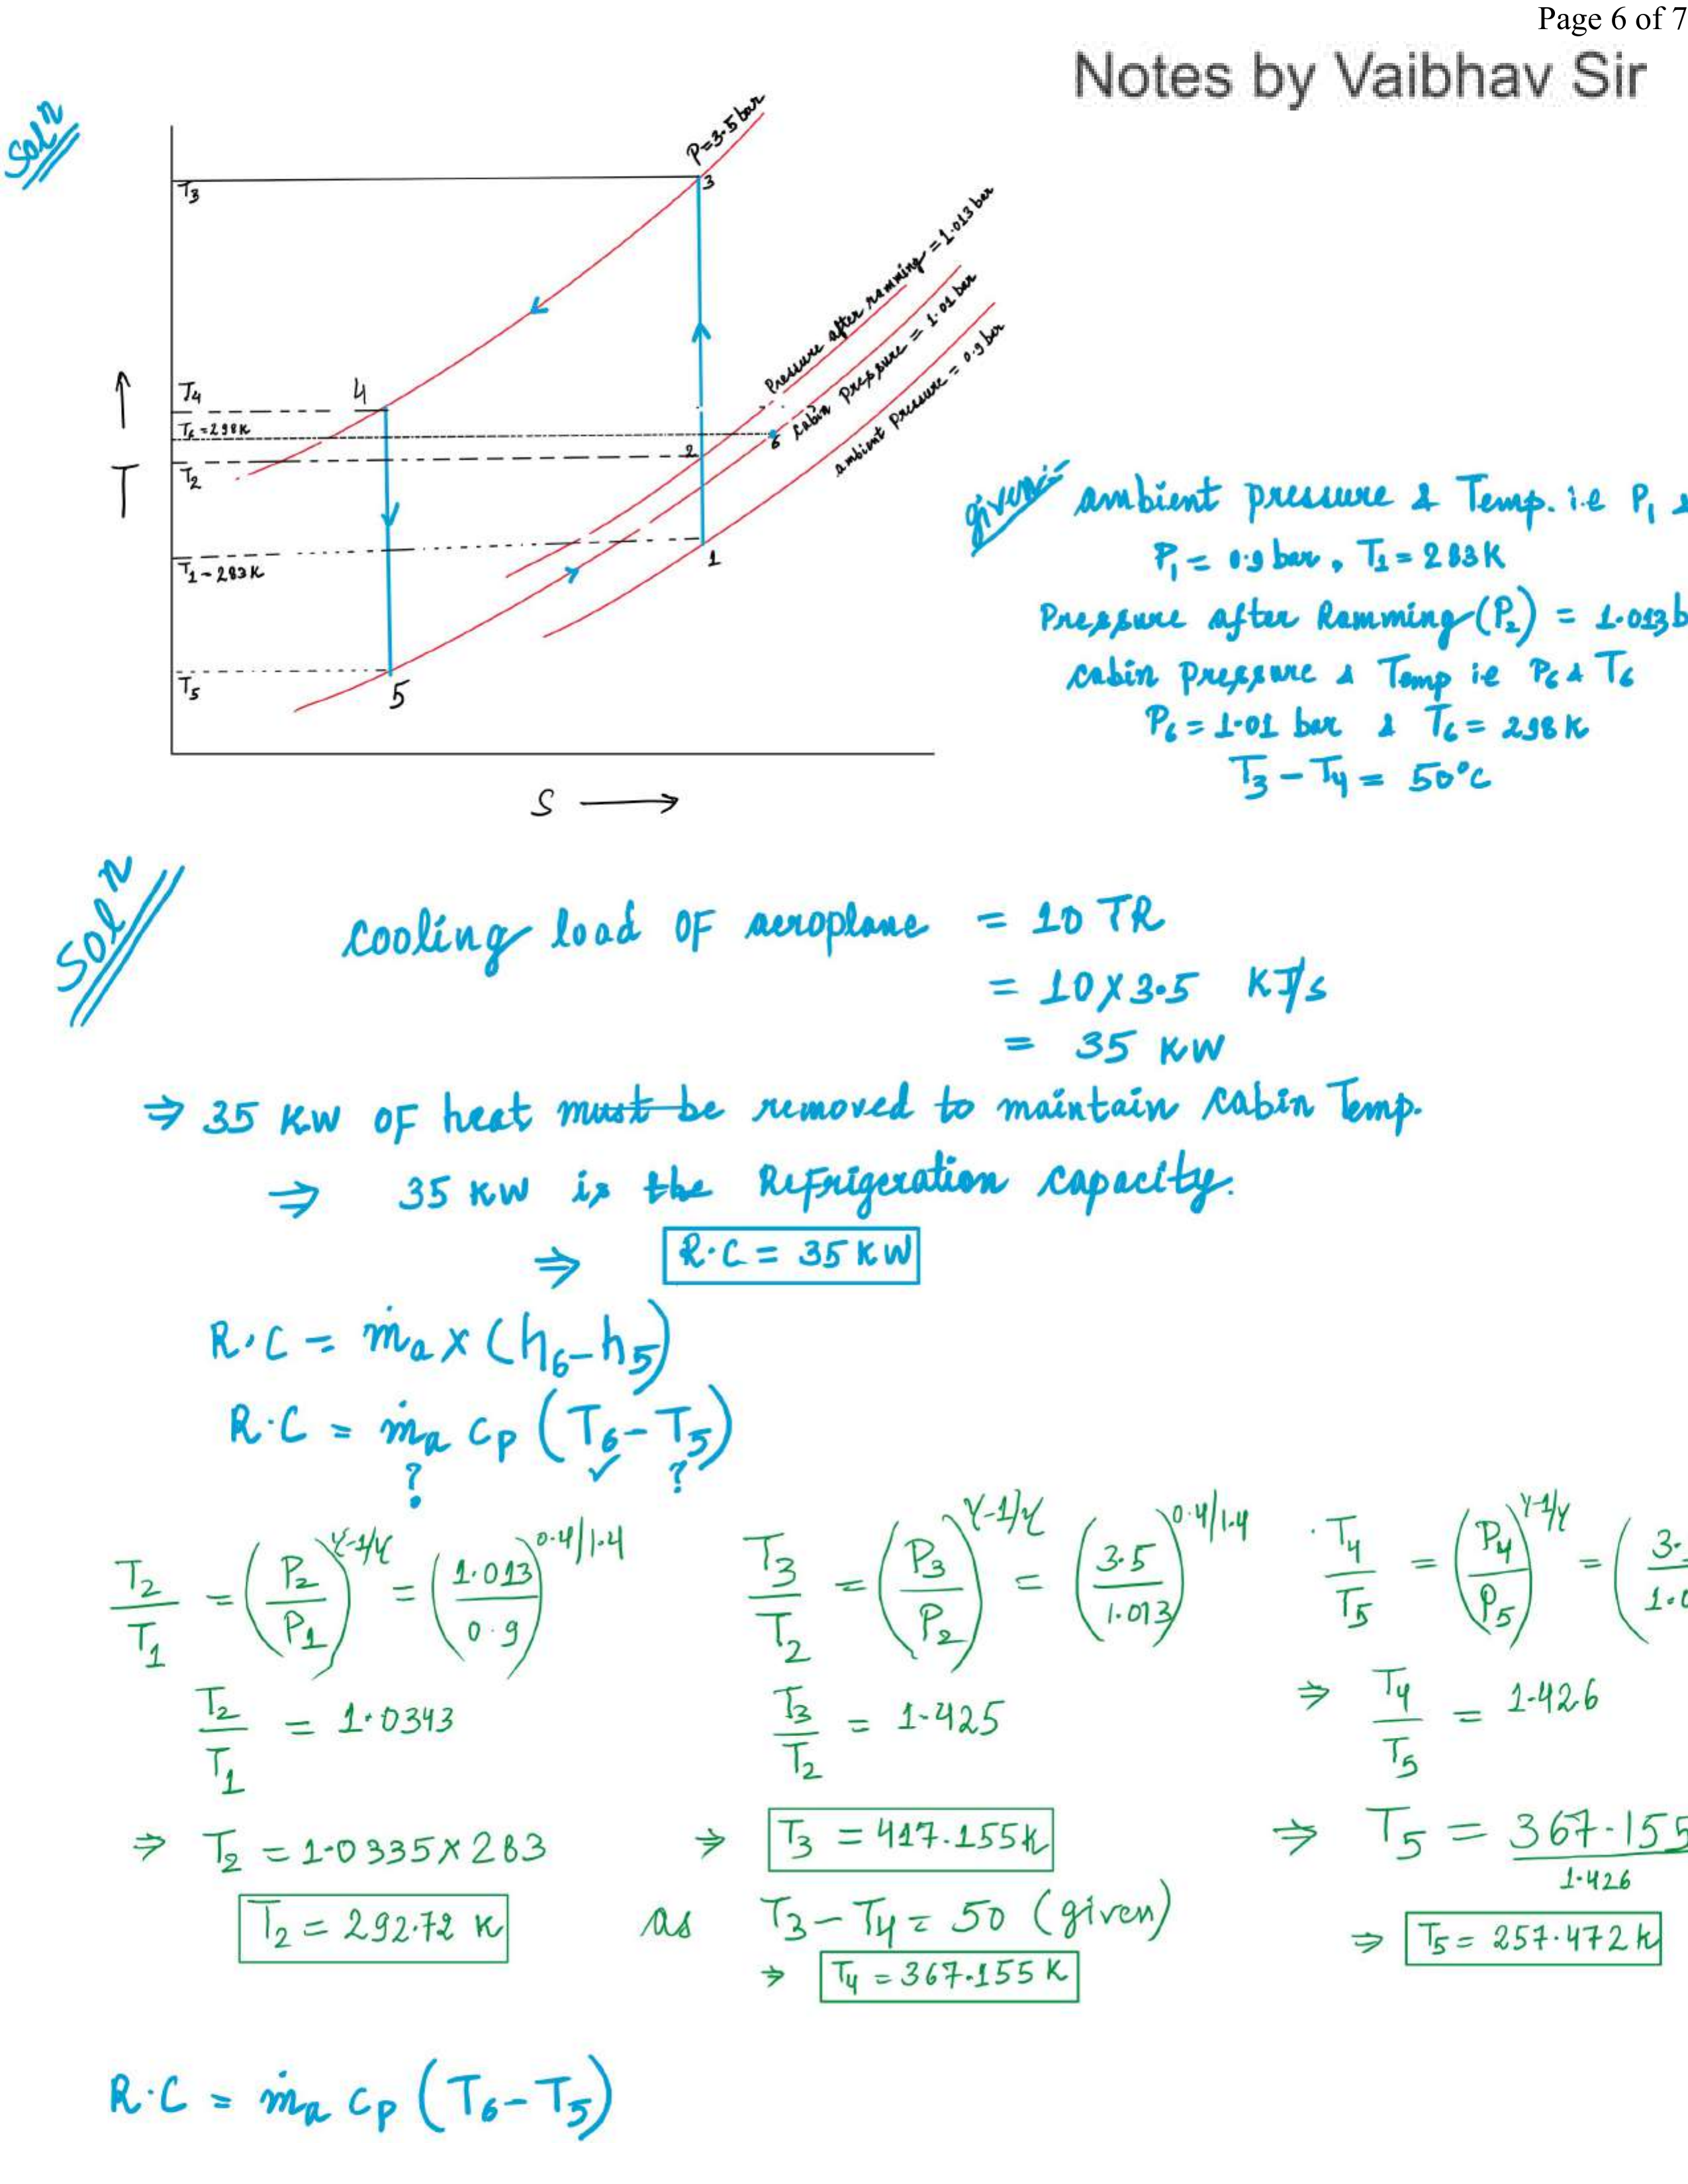 Page 6 of 7
Notes by Vaibhav Sir
Solⁿ
P=3.5 bar
3
T3
Pressure after ramming = 1.013 bar
cabin pressure = 1.01 bar
ambient pressure = 0.9 bar
T4
4
T6 = 298K
6
2
T2
↑
T
T1 - 283K
1
T5
5
S →
given:-
ambient pressure & Temp. i.e P1 &
P1 = 0.9 bar, T1 = 283K
Pressure after Ramming (P2) = 1.013 b
cabin pressure & Temp ie P6 & T6
P6 = 1.01 bar & T6 = 298K
T3 - T4 = 50°C
Solⁿ
cooling load OF aeroplane = 10 TR
= 10 X 3.5 KJ/s
= 35 KW
⇒ 35 KW OF heat must be removed to maintain cabin Temp.
⇒ 35 KW is the Refrigeration capacity.
⇒ R.C = 35 KW
R.C = ṁa x (h6 - h5)
R.C = ṁa cp (T6 - T5)
? ✓ ?
T2/T1 = (P2/P1)^γ-1/γ = (1.013/0.9)^0.4/1.4
T2/T1 = 1.0343
⇒ T2 = 1.0335 X 283
T2 = 292.72 K
T3/T2 = (P3/P2)^γ-1/γ = (3.5/1.013)^0.4/1.4
T3/T2 = 1.425
⇒ T3 = 417.155K
as T3 - T4 = 50 (given)
⇒ T4 = 367.155 K
T4/T5 = (P4/P5)^γ-1/γ = (3./1.0
⇒ T4/T5 = 1.426
⇒ T5 = 367.155/1.426
⇒ T5 = 257.472 K
R.C = ṁa cp (T6 - T5)